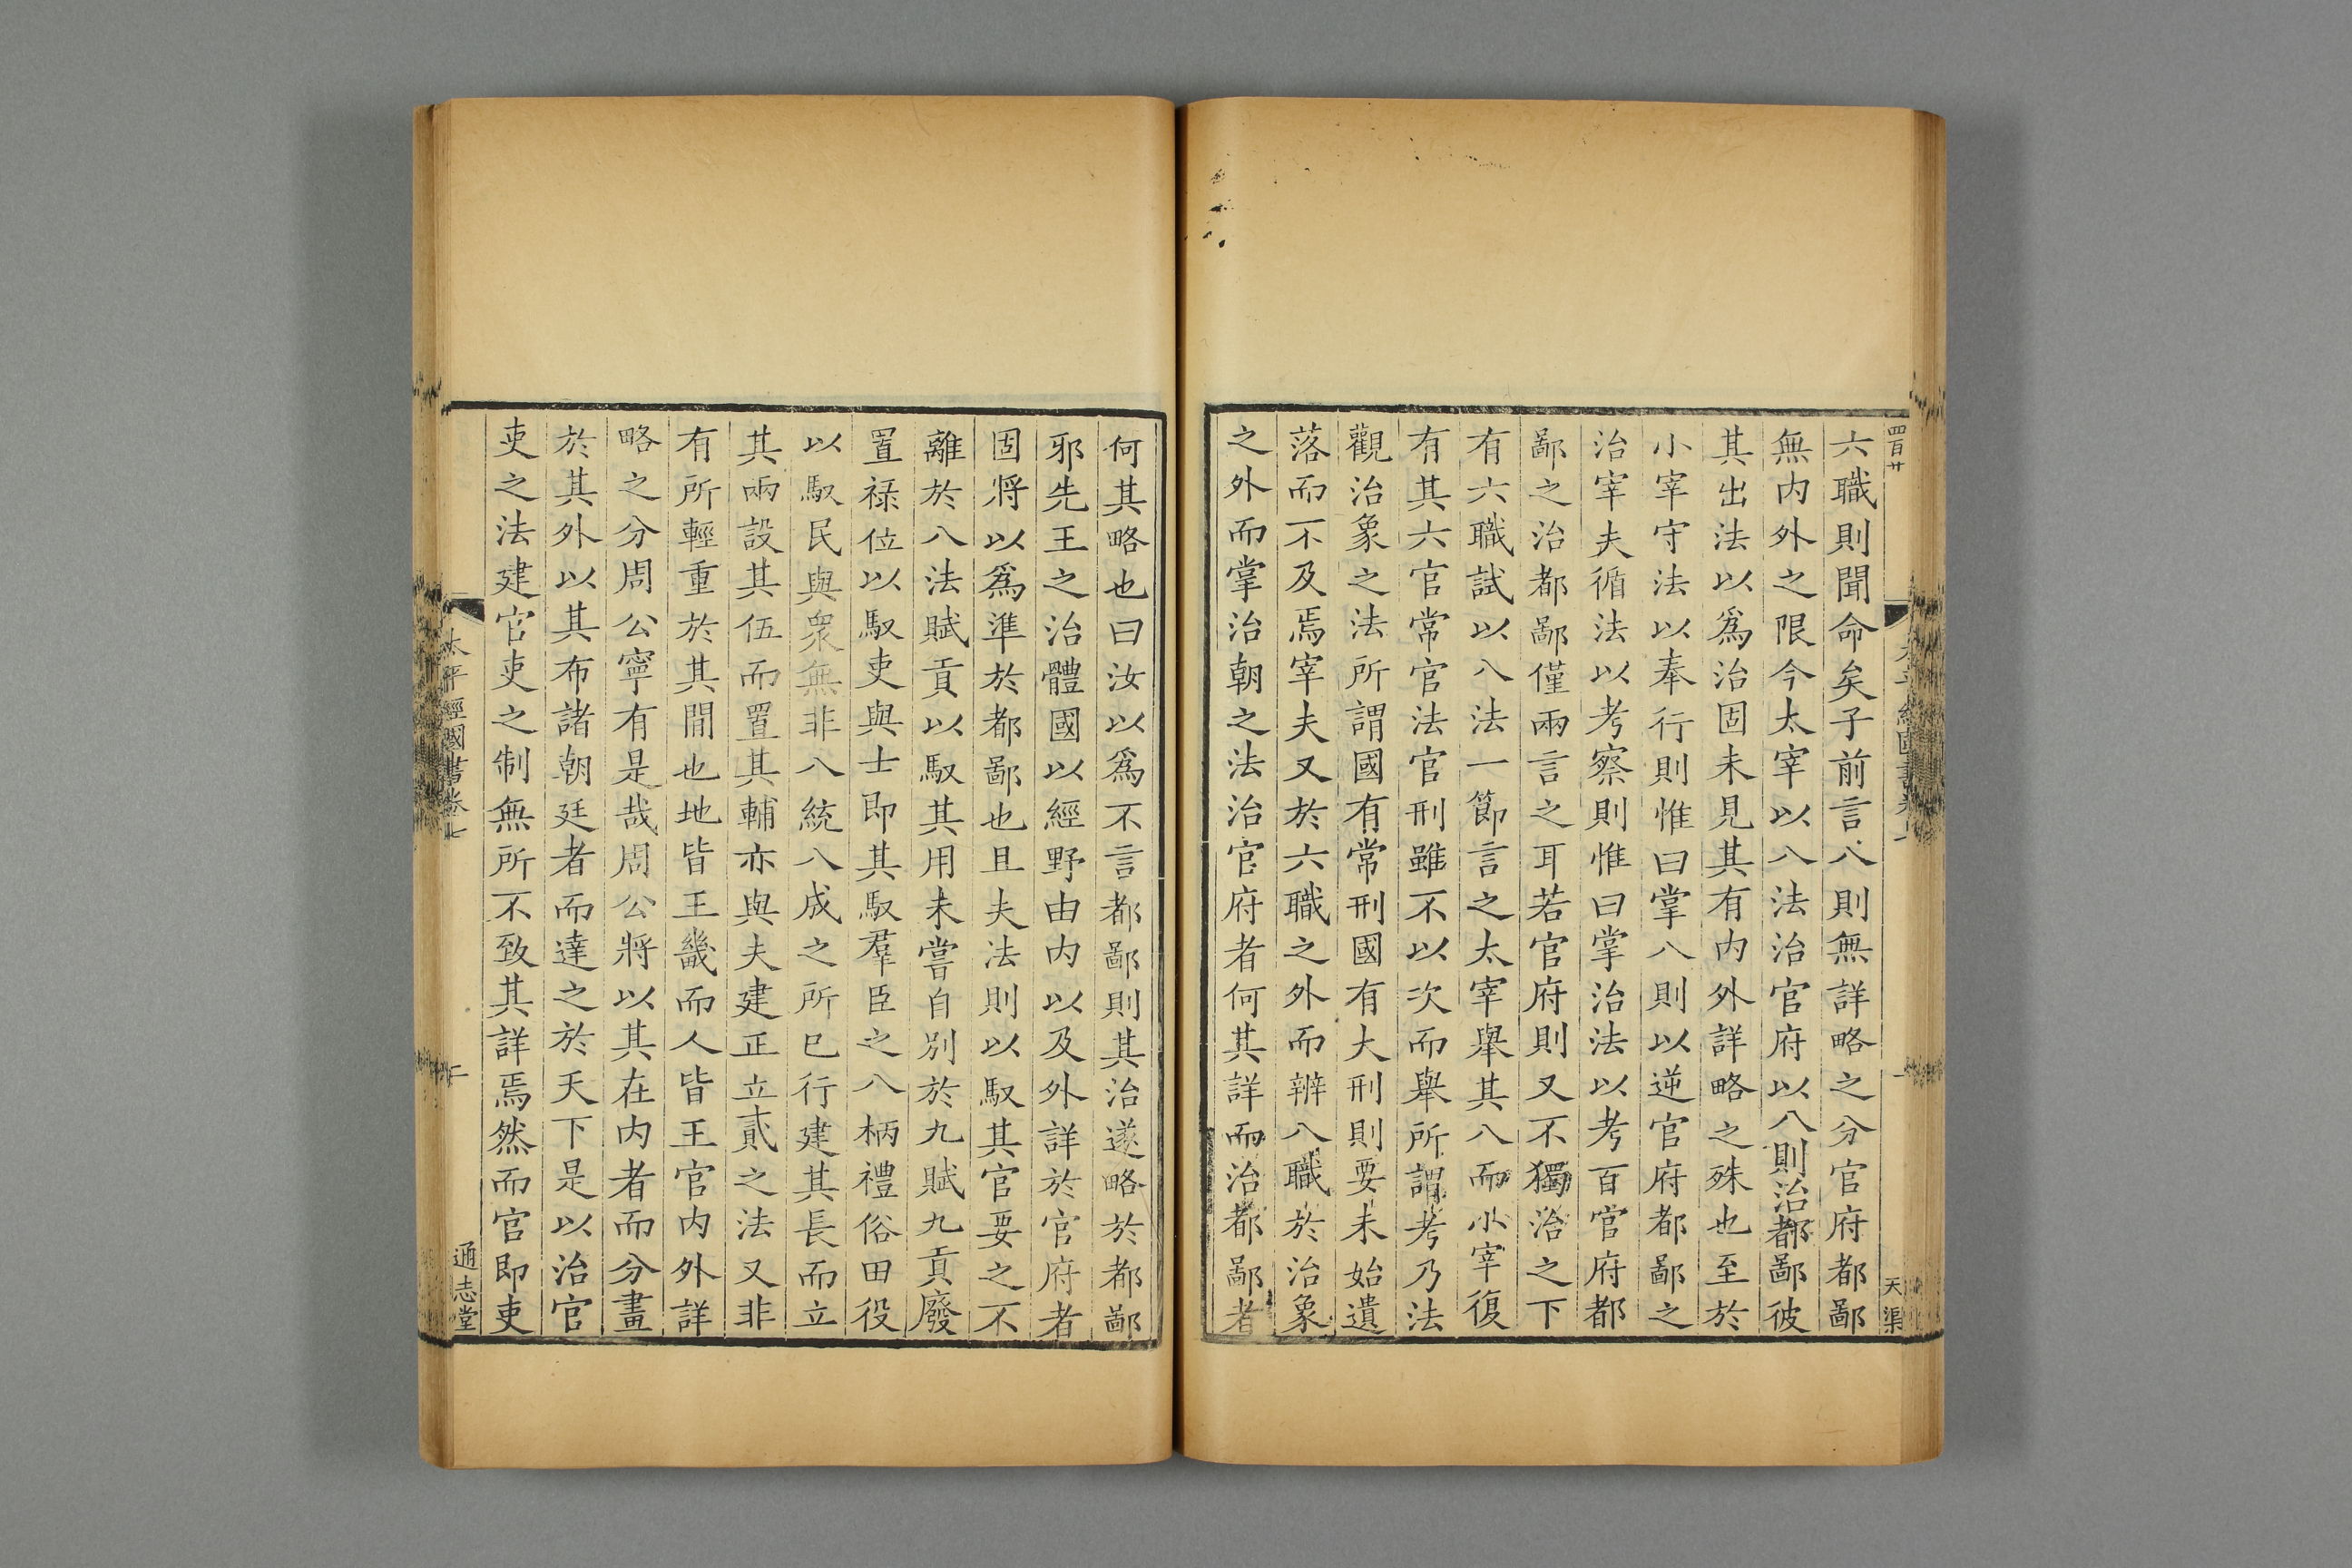 四百廿
六職則聞命矣子前言八則無詳略之分官府都鄙
無内外之限今太宰以八法治官府以八則治都鄙彼
其出法以爲治固未見其有内外詳略之殊也至於
小宰守法以奉行則惟曰掌八則以逆官府都鄙之
治宰夫循法以考察則惟曰掌治法以考百官府都
鄙之治都鄙僅兩言之耳若官府則又不獨治之下
有六職試以八法一節言之太宰舉其八而小宰復
有其六官常官法官刑雖不以次而舉所謂考乃法
觀治象之法所謂國有常刑國有大刑則要未始遺
落而不及焉宰夫又於六職之外而辨八職於治象
之外而掌治朝之法治官府者何其詳而治都鄙者
天渠
何其略也曰汝以爲不言都鄙則其治遂略於都鄙
邪先王之治體國以經野由内以及外詳於官府者
固將以爲準於都鄙也且夫法則以馭其官要之不
離於八法賦貢以馭其用未嘗自別於九賦九貢廢
置祿位以馭吏與士即其馭羣臣之八柄禮俗田役
以馭民與衆無非八統八成之所已行建其長而立
其兩設其伍而置其輔亦與夫建正立貳之法又非
有所輕重於其間也地皆王畿而人皆王官内外詳
略之分周公寧有是哉周公將以其在内者而分畫
於其外以其布諸朝廷者而達之於天下是以治官
吏之法建官吏之制無所不致其詳焉然而官即吏
太平經國書卷七
通志堂